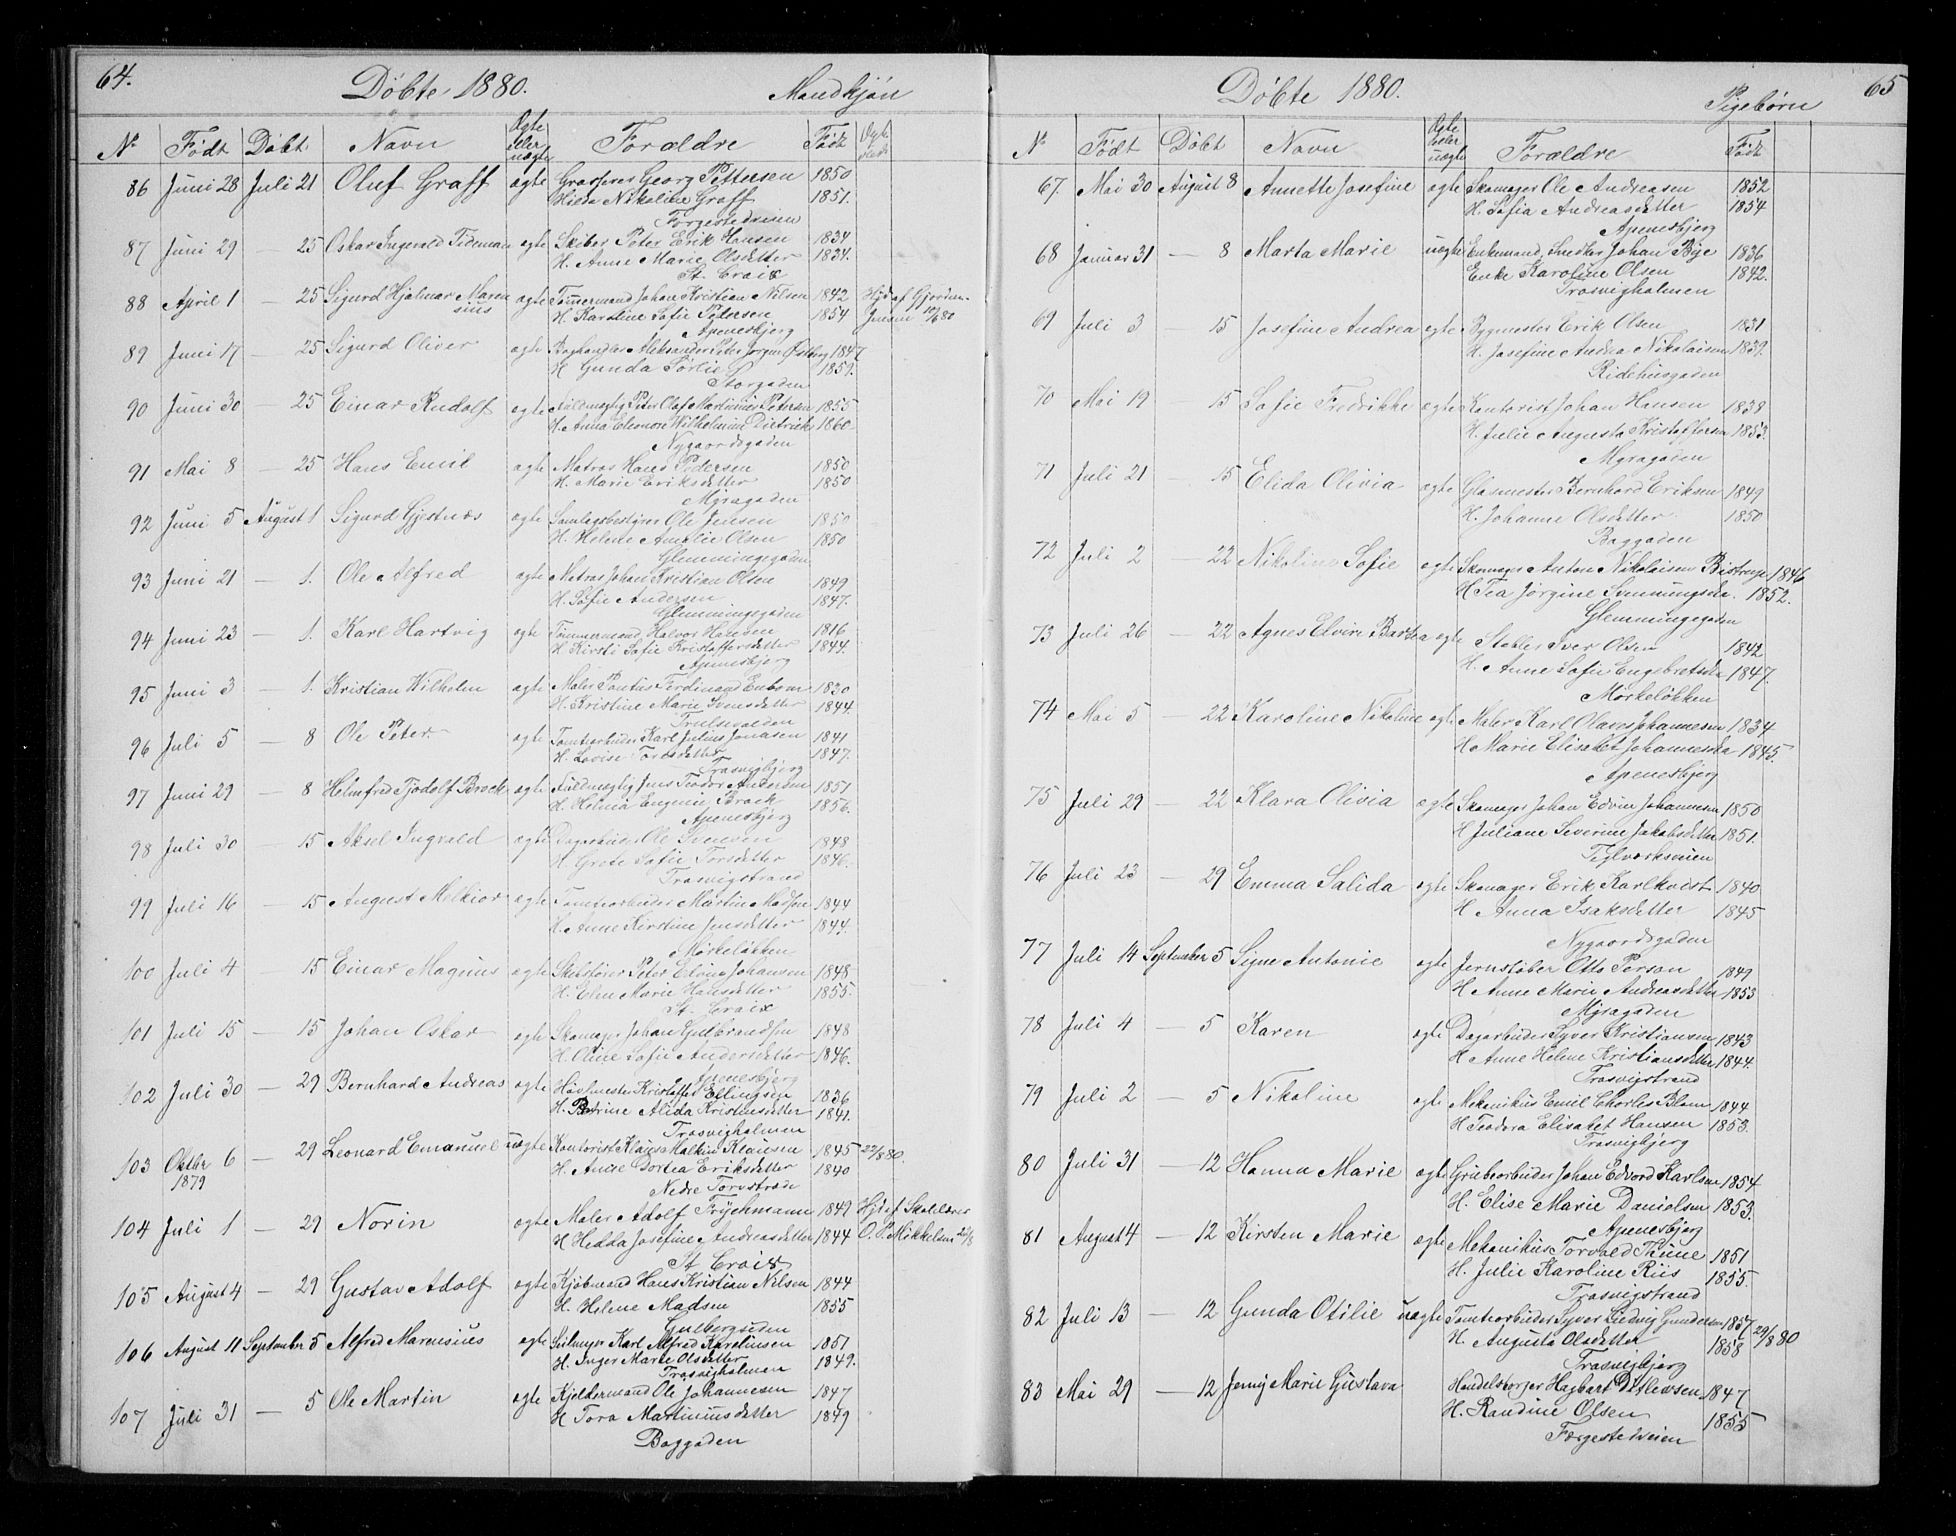 64.
Döbte 1880.
Mandkjön
No Födt Döbt Navn Ægte eller uægte Forældre Födt
86 Juni 28 Juli 21 Oluf Graff ægte Grosserer Georg Pettersen 1850
Hilda Nikoline Graff 1851.
Færgestedveien
87 Juni 29 — 25 Oskar Ingevald Tideman ægte Skiber Peter Erik Hansen 1834
H. Anne Marie Olsdatter 1834.
St. Croix
88 April 1 — 25 Sigurd Hjalmar Maren ægte Tömmermand Johan Kristian Nilsen 1842 Hjd af Gjordm.
sius H. Karoline Sofie Petersen 1854 Jensen 10/6 80
Apenesbjerg
89 Juni 17 — 25 Sigurd Oliver ægte Boghandler Aleksander Peter Jörgen Östberg 1847
H Gunda Sörlie 1859.
Storgaden
90 Juni 30 — 25 Einar Rudolf ægte Fuldmægtig Peter Olaf Martinius Petersen 1855
H. Anna Eleonore Wilhelmine Dietrichs 1860
Nygaardsgaden
91 Mai 8 — 25 Hans Emil ægte Matros Hans Pedersen 1850
H. Marie Eriksdatter 1850
Myragaden
92 Juni 5 August 1 Sigurd Gjestnæs ægte Samlagsbestyrer Ole Jensen 1850
H. Helene Amalie Olsen 1850
Glemmingegaden
93 Juni 21 — 1. Ole Alfred ægte Matros Johan Kristian Olsen 1849
H. Sofie Andersen 1847.
Glemmingegaden
94 Juni 23 — 1. Karl Hartvig ægte Tömmermand Halvor Hansen 1816
H. Kirsti Sofie Kristoffersdatter 1844.
Apenesbjerg
95 Juni 3 — 1. Kristian Wilhelm ægte Maler Pontus Ferdinand 1830
H. Kristine Marie Svensdatter 1844.
Trulsvolden
96 Juli 5 — 8 Ole Peter ægte Tomtearbeider Karl Julius Jonasen 1841
H. Lovise Torsdatter 1847.
Trosvigbjerg
97 Juni 29 — 8 Helmfred Tjodolf Brock ægte Fuldmægtig Jens Teodor Andersen 1851
H. Helena Eugenie Brock 1856.
Apenesbjerg
98 Juli 30 — 15 Aksel Ingvald ægte Dagarbeider Ole Svensen 1848
H. Grete Sofie Torsdatter 1846.
Trosvigstrand
99 Juli 16 — 15 August Melkior ægte Tomtearbeider Martin Madsen 1844
H. Anne Kirstine Jensdatter 1844.
Mörkelökken
100 Juli 4 — 15 Einar Magnus ægte Skibsförer Peter Edvin Johansen 1848
H. Elen Marie Hansdatter 1855.
St. Croix
101 Juli 15 — 15 Johan Oskar ægte Skomager Johan Gulbrandsen 1848
H. Oline Sofie Andersdatter 1846.
Apenesbjerg
102 Juli 30 — 29 Bernhard Andreas ægte Hövlmester Kristoffer Ellingsen 1836
H. Petrine Alida Kristensdatter 1841.
Trosvigholmen
103 Oktbr 6 — 29 Leonard Emanuel uægte Kontorist Klaus Malthin Klausen 1845 22/8 80.
1879 H. Anne Dortea Eriksdatter 1840
Nedre Torvstræde
104 Juli 1 — 29 Norin ægte Maler Adolf Frychmann 1849 Hjd af Skolelærer
H Hedda Josefine Andreasdatter 1844 O. P. Mikkelsen 22/8
St Croix
105 August 4 — 29 Gustav Adolf ægte Kjöbmand Hans Kristian Nilsen 1844
H. Helene Madsen 1855
Gulbergseden
106 August 11 September 5 Alfred Marensius ægte Seilmager Karl Alfred Karelinsen 1851
H. Inger Marie Olsdatter 1849.
Trosvigholmen
107 Juli 31 — 5 Ole Martin ægte Kjeldermand Ole Johannesen 1847
H Tora Martiniusdatter 1849
Baggaden
65
Döbte 1880.
Pigebörn
No Födt Döbt Navn Ægte eller uægte Forældre Födt
67. Mai 30 August 8 Annette Josefine ægte Skomager Ole Andreasen 1852
H. Sofia Andreasdatter 1854
Apenesbjerg
68 Januar 31 — 8 Marta Marie uægte Enkemand Snedker Johan Bye 1836
Enke Karoline Olsen 1842.
Trosvigholmen
69 Juli 3 — 15 Josefine Andrea ægte Bygmester Erik Olsen 1831
H. Josefine Andrea Nikolaisen 1839.
Ridehusgaden
70 Mai 19 — 15 Sofie Fredrikke ægte Kontorist Johan Hansen 1838
H. Julie Augusta Kristoffersen 1853.
Myragaden
71 Juli 21 — 15 Elida Olivia ægte Glasmester Bernhard Eriksen 1849
H. Johanne Olsdatter 1850
Baggaden
72 Juli 2 — 22 Nikoline Sofie ægte Skomager Anton Nikolaisen Bistrup 1846
H Tea Jörgine Svenningsda. 1852.
Glemmingegaden
73 Juli 26 — 22 Agnes Elvire Barbra ægte Stabler Iver Olsen 1842
H. Anne Sofie Engebretsda 1847.
Mörkelökken
74 Mai 5 — 22 Karoline Nikoline ægte Maler Karl Olaves Johannesen 1834
H Marie Elisabet Johannesda 1845.
Apenesbjerg
75 Juli 29 — 22 Klara Olivia ægte Skomager Johan Edvin Johannesen 1850
H Juliane Severine Jakobsdatter 1851.
Teglværksveien
76 Juli 23 — 29 Emma Salida ægte Skomager Erik Karlkvist 1840
H Anna Isaksdatter 1845
Nygaardsgaden
77 Juli 14 September 5 Signe Antonie ægte Jernstöber Otto Person 1849
H Anne Marie Andreasdatter 1853
Myragaden
78 Juli 4 — 5 Karen ægte Dagarbeider Syver Kristiansen 1843
H Anne Helene Kristiansdatter 1844.
Trosvigstrand
79 Juli 2 — 5 Nikoline ægte Mekanikus Emil Charles Blom 1844
H Teodora Elisabet Hansen 1853.
Trosvigbjerg
80 Juli 31 — 12 Hanna Marie ægte Grubearbeider Johan Edvard Karlsen 1854
H. Elise Marie Danielsen 1853.
Apenesbjerg
81 August 4 — 12 Kirsten Marie ægte Mekanikus Torvald Thune 1851
H. Julie Karoline Riis 1855.
Trosvigstrand
82 Juli 13 — 12 Gunda Otilie uægte Tomtearbeider Syver Ludvig Gundersen 1857 29/8 80
H. Augusta Olsdatter 1858
Trosvigbjerg
83 Mai 29 — 12 Jenny Marie Gustava Handelsreiser Hagbart Ditlevsen 1847
H. Randine Olsen 1855
Færgestedveien